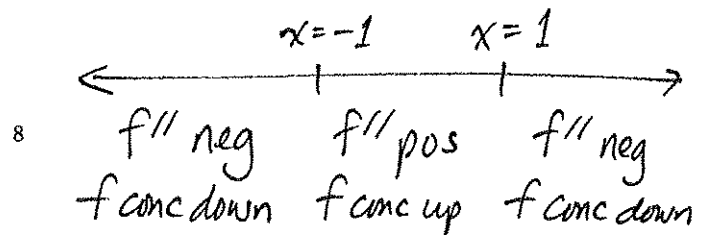 x=-1 x=1
8 f'' neg f'' pos f'' neg
f conc down f conc up f conc down